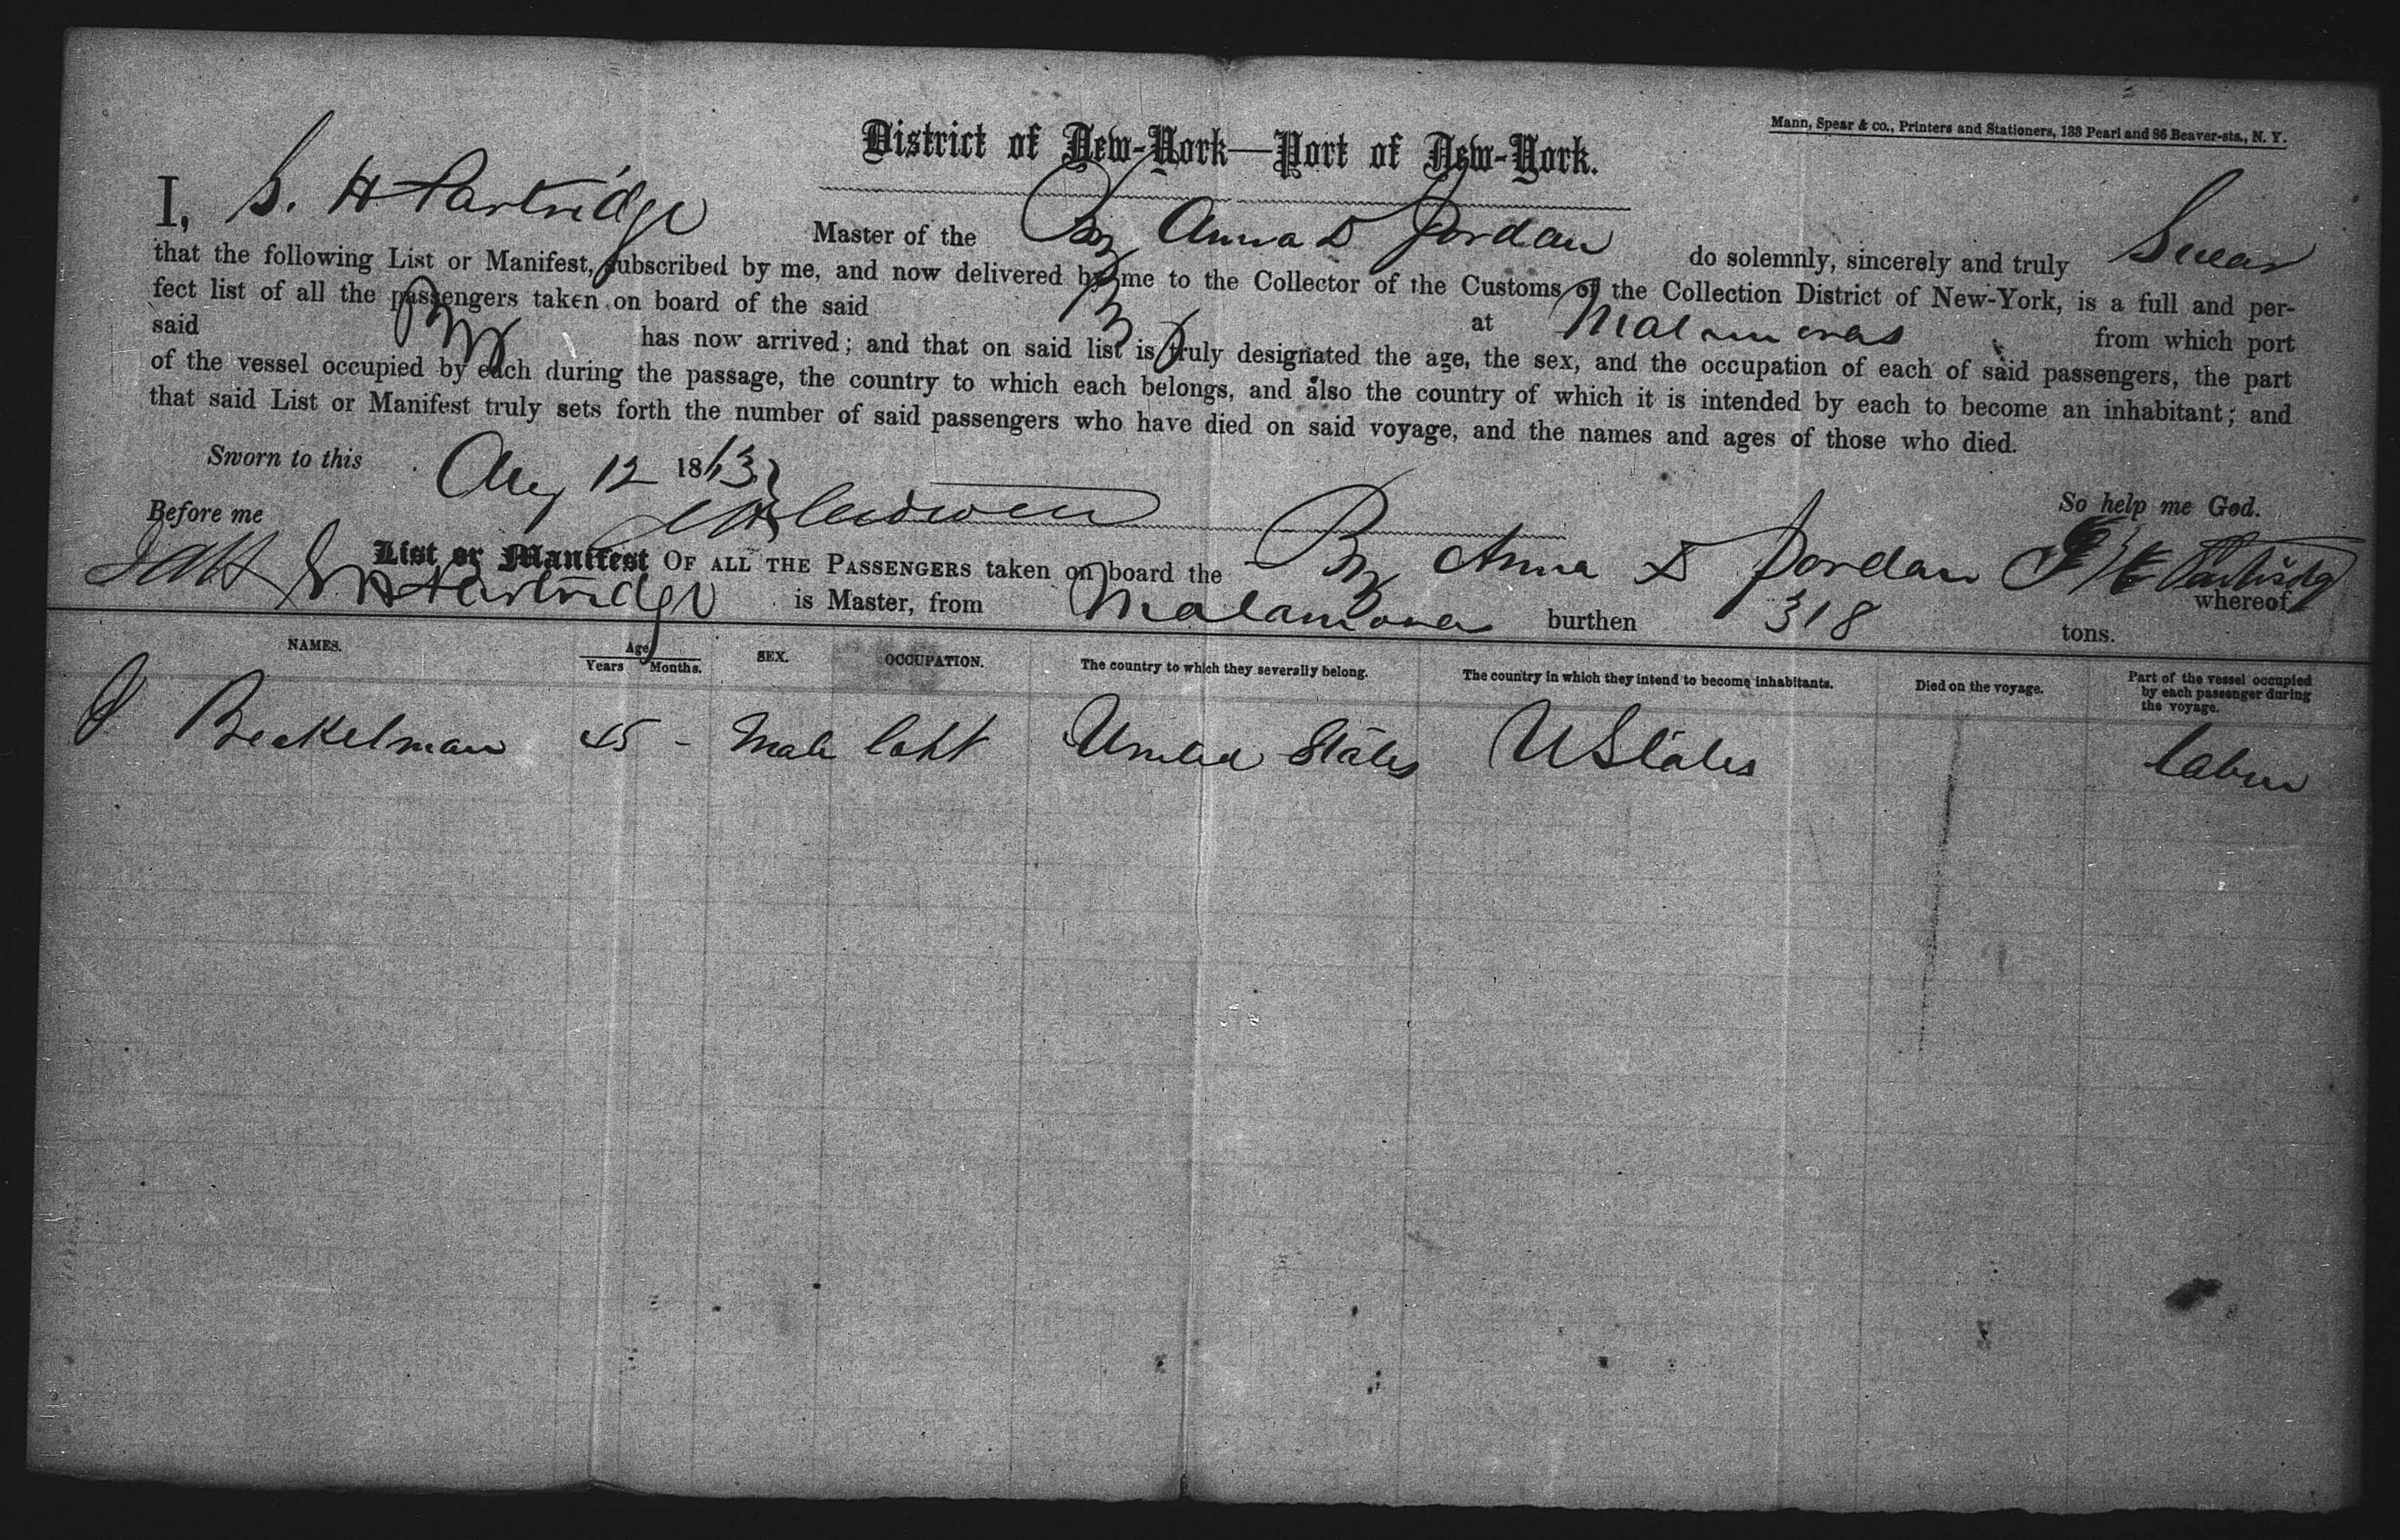 Mann, Spear & co., Printers and Stationers, 188 Pearl and 86 Beaver-sts., N. Y.
District of New-York—Port of New-York.
I, S. H Partridge Master of the Brg Anna D Jordan do solemnly, sincerely and truly Swear
that the following List or Manifest, subscribed by me, and now delivered by me to the Collector of the Customs of the Collection District of New-York, is a full and per-
fect list of all the passengers taken on board of the said Brg at from which port
said Brg has now arrived; and that on said list is truly designated the age, the sex, and the occupation of each of said passengers, the part
of the vessel occupied by each during the passage, the country to which each belongs, and also the country of which it is intended by each to become an inhabitant; and
that said List or Manifest truly sets forth the number of said passengers who have died on said voyage, and the names and ages of those who died.
Sworn to this Aug 12 1863
So help me God.
Before me
List or Manifest OF ALL THE PASSENGERS taken on board the Brg Anna D Jordan whereof
S H Partridge is Master, from burthen 318 tons.
NAMES. Age Years Months. SEX. OCCUPATION. The country to which they severally belong. The country in which they intend to become inhabitants. Died on the voyage. Part of the vessel occupied by each passenger during the voyage.
Beckelman 45 - Male Capt United States U States Cabin